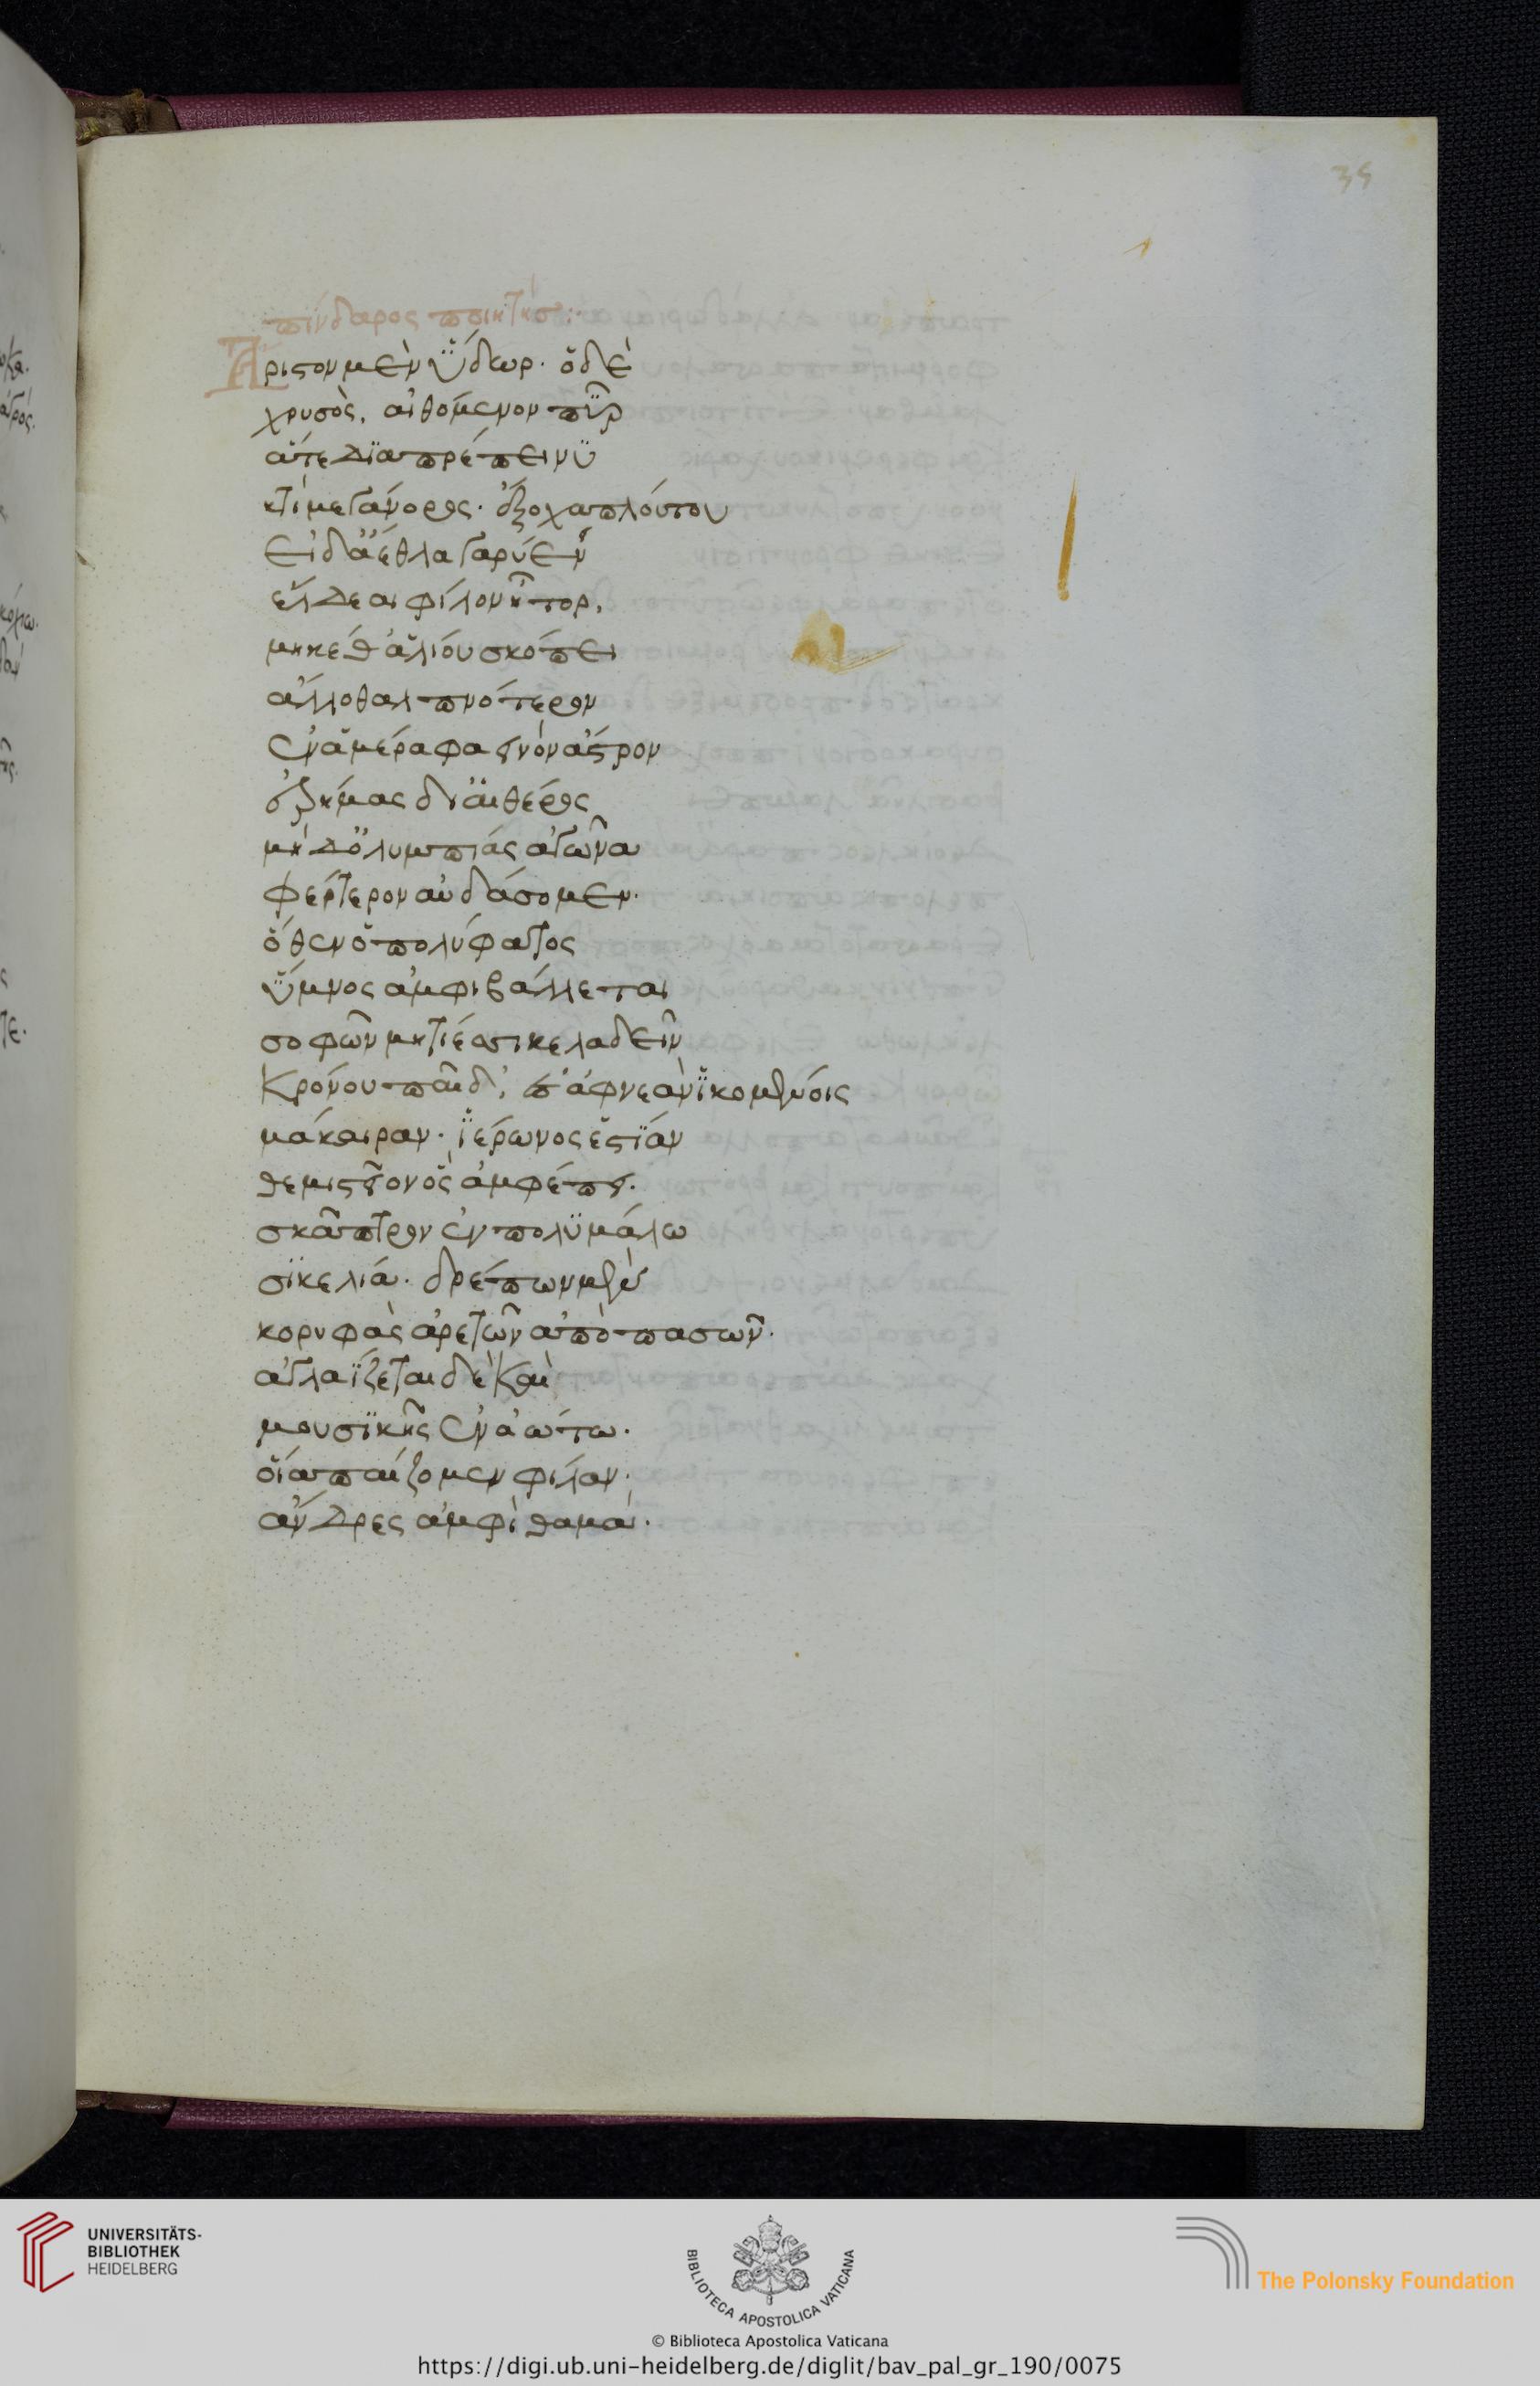 35
πίνδαρος ποιητής:
Ἄριστον μὲν ὕδωρ· ὁ δὲ
χρυσὸς, αἰθόμενον πῦρ
ἅτε διαπρέπει νυ
κτὶ μεγάνορος· ἔξοχα πλούτου
εἰ δ' ἄεθλα γαρύεν
ἔλδεαι φίλον ἦτορ,
μηκέθ' ἁλίου σκόπει
ἄλλο θαλπνότερον
ἐν ἁμέρα φαεινὸν ἄστρον
ἐρήμας δι' αἰθέρος
μὴ δ' ὀλυμπίας ἀγῶνα
φέρτερον αὐδάσομεν·
ὅθεν ὁ πολύφατος
ὕμνος ἀμφιβάλλεται
σοφῶν μητίεσσι κελαδεῖν
Κρόνου παῖδ', ἐς ἀφνεὰν ἱκομένοις
μάκαιραν· ἱέρωνος ἑστίαν
θεμιστεῖον ὃς ἀμφέπει·
σκᾶπτρον ἐν πολυμάλω
σικελία· δρέπων μὲν
κορυφὰς ἀρετᾶν ἀπὸ πασῶν·
ἀγλαΐζεται δὲ καὶ
μουσικῆς ἐν ἀώτω·
οἷα παίζομεν φίλαν·
ἄνδρες ἀμφὶ θαμὰ·
UNIVERSITÄTS-
BIBLIOTHEK
HEIDELBERG
BIBLIOTECA APOSTOLICA VATICANA
The Polonsky Foundation
© Biblioteca Apostolica Vaticana
https://digi.ub.uni-heidelberg.de/diglit/bav_pal_gr_190/0075